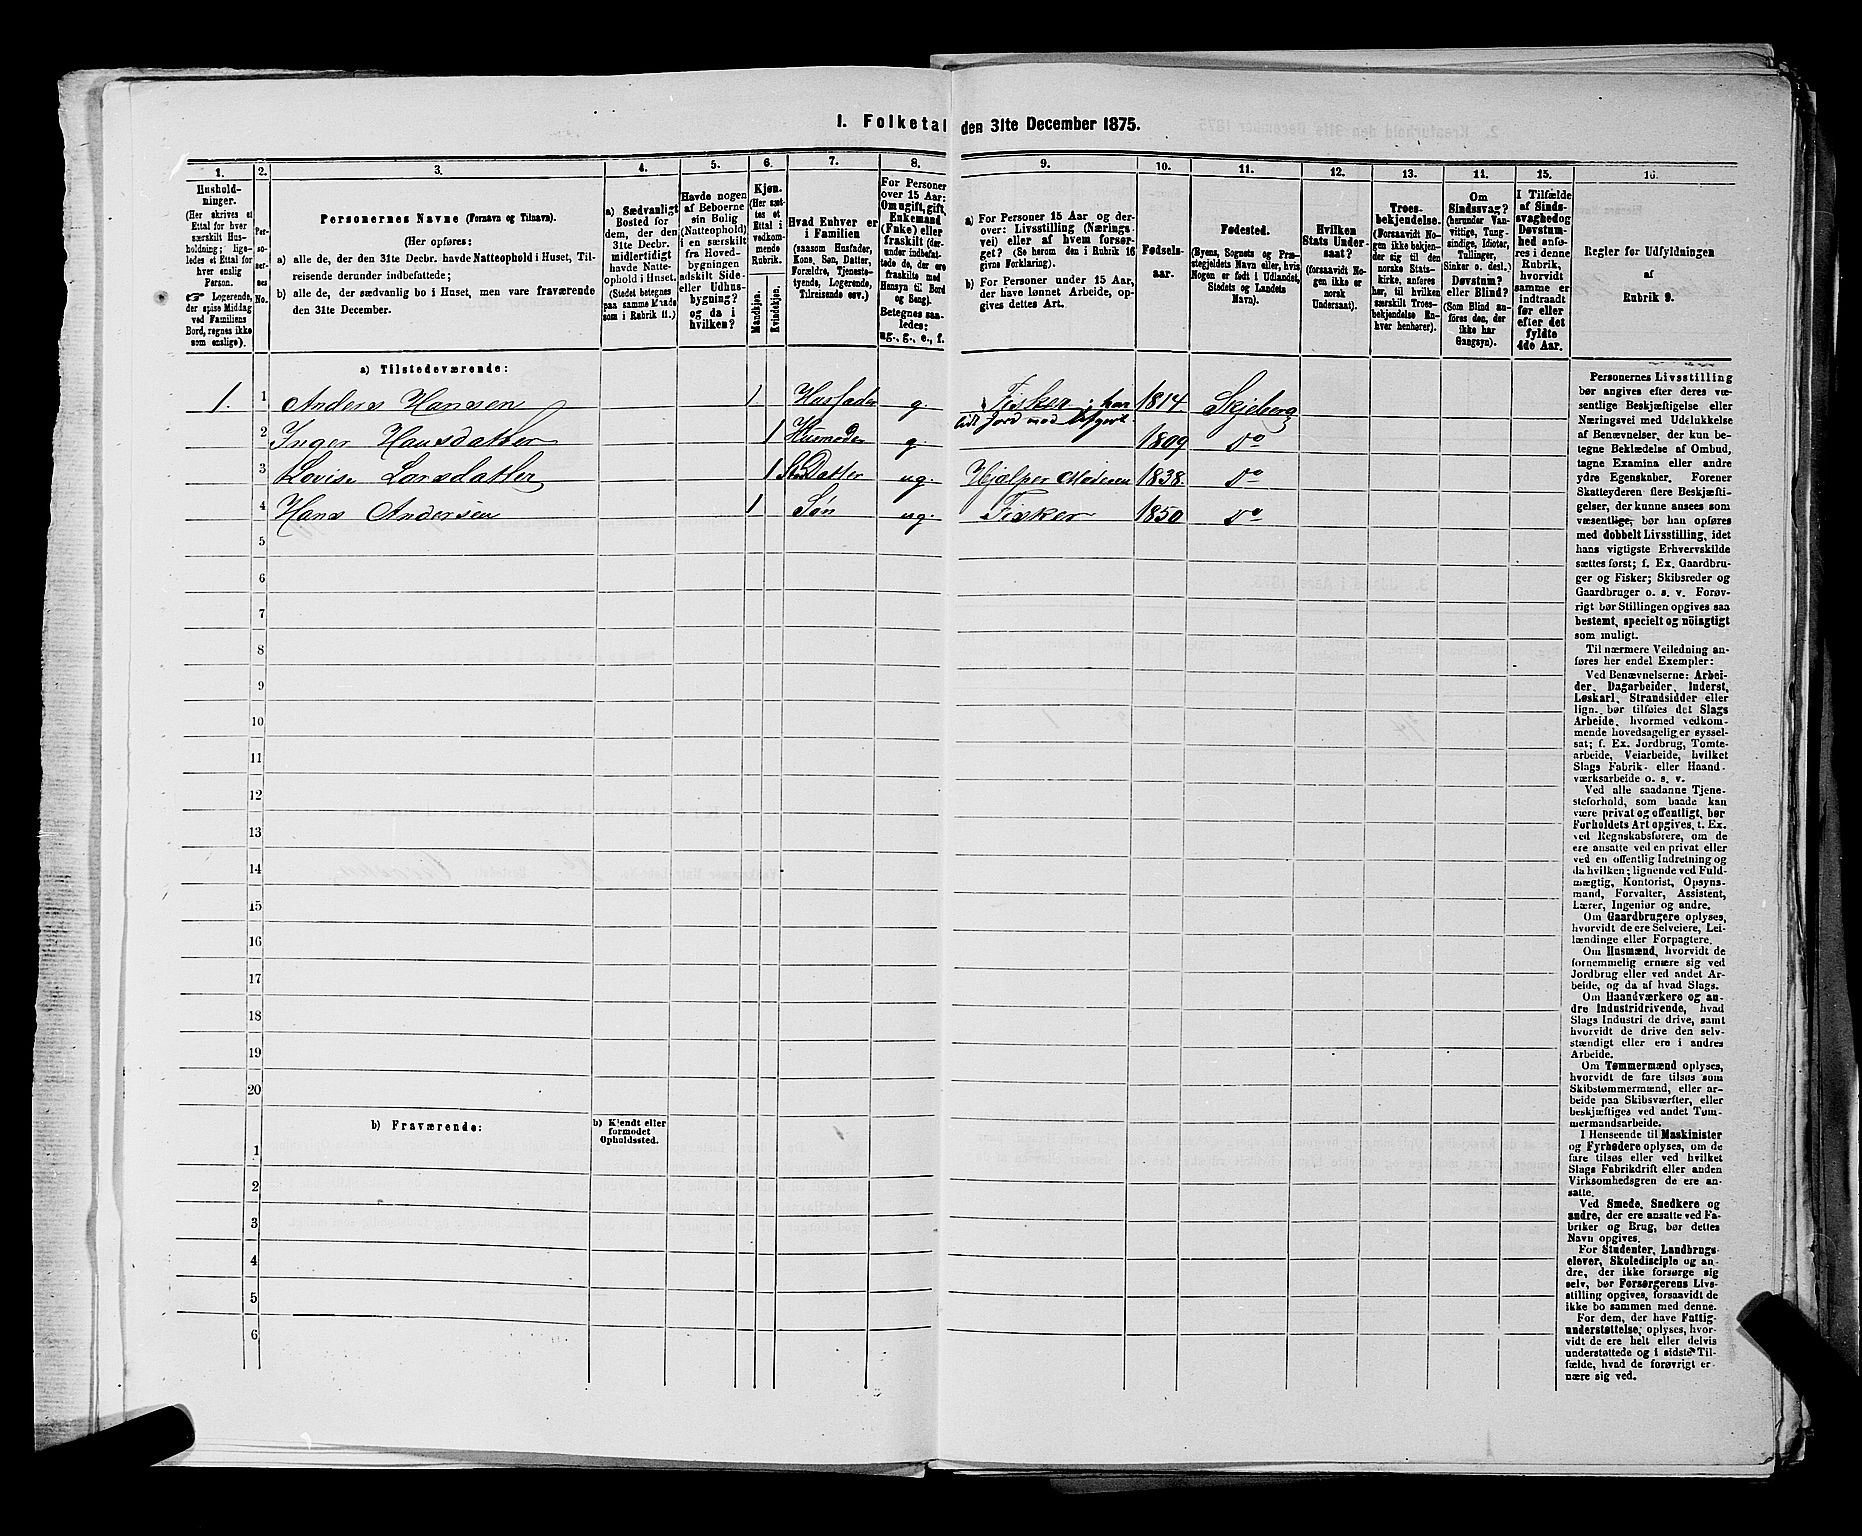 I. Folketal den 31te December 1875.
1.
Hushold-
ninger.
(Her skrives et
Ettal for hver
særskilt Hus-
holdning; lige-
ledes et Ettal for
hver enslig
Person.
☞ Logerende,
der spise Middag
ved Familiens
Bord, regnes ikke
som enslige).
2.
Per-
so-
ner-
nes
No.
3.
Personernes Navne (Fornavn og Tilnavn).
(Her opføres:
a) alle de, der den 31te Decbr. havde Natteophold i Huset, Til-
reisende derunder indbefattede;
b) alle de, der sædvanlig bo i Huset, men vare fraværende
den 31te December.
4.
a) Sædvanligt
Bosted for
dem, der den
31te Decbr.
midlertidigt
havde Natte-
ophold i Huset.
(Stedet betegnes
paa samme Maade
som i Rubrik 11.)
5.
Havde nogen
af Beboerne
sin Bolig
(Natteophold)
i en særskilt
fra Hoved-
bygningen
adskilt Side-
eller Udhus-
bygning?
og da i
hvilken?
6.
Kjøn.
(Her sæt-
tes et
Ettal i
vedkom-
mende
Rubrik.
Mandkjøn.
Kvindekjøn.
7.
Hvad Enhver er
i Familien
(saasom Husfader,
Kone, Søn, Datter,
Forældre, Tjeneste-
tyende, Logerende,
Tilreisende osv.)
8.
For Personer
over 15 Aar:
Om ugift, gift,
Enkemand
(Enke) eller
fraskilt (der-
under indbefat-
tede de, der ere
fraskilte med
Hensyn til Bord
og Seng).
Betegnes saa-
ledes:
ug., g., e., f.
9.
a) For Personer 15 Aar og der-
over: Livsstilling (Nærings-
vei) eller af hvem forsør-
get? (Se herom den i Rubrik 16
givne Forklaring).
b) For Personer under 15 Aar,
der have lønnet Arbeide, op-
gives dettes Art.
10.
Fødsels-
aar.
11.
Fødested.
(Byens, Sognets og Præ-
stegjeldets Navn eller, hvis
Nogen er født i Udlandet,
Stedets og Landets
Navn).
12.
Hvilken
Stats Under-
saat?
(forsaavidt No-
gen ikke er
norsk
Undersaat).
13.
Troes-
bekjendelse.
(Forsaavidt No-
gen ikke bekjen-
der sig til den
norske Stats-
kirke, anføres
her, til hvilken
særskilt Troes-
bekjendelse En-
hver henhører).
11.
Om
Sindssvag?
(herunder Van-
vittige, Tung-
sindige, Idioter,
Tullinger,
Sinker o. desl.)
Døvstum?
eller Blind?
(Som Blind an-
føres den, der
ikke har
Gangsyn).
15.
I Tilfælde
af Sinds-
svaghed og
Døvstum-
hed anfø-
res i denne
Rubrik,
hvorvidt
samme er
indtraadt
før eller
efter det
fyldte
4de Aar.
16.
Regler for Udfyldningen
af
Rubrik 9.
a) Tilstedeværende:
1. 1 Anders Hansen 1 Husfader g. Fisker; har 1814 Skjeberg
lidt Jord med
2 Inger Hansdatter 1 Husmoder g. 1809 Do
3 Lovise Larsdatter 1 Datter ug. Hjælper Moderen 1838 Do
4 Hans Andersen 1 Søn ug. Fisker 1850 Do
5
6
7
8
9
10
11
12
13
14
15
16
17
18
19
20
b) Fraværende:
b) Kjendt eller
formodet
Opholdssted.
1
2
3
4
5
6
Personernes Livsstilling
bør angives efter deres væ-
sentlige Beskjæftigelse eller
Næringsvei med Udelukkelse
af Benævnelser, der kun be-
tegne Beklædelse af Ombud,
tagne Examina eller andre
ydre Egenskaber. Forener
Skatteyderen flere Beskjæfti-
gelser, der kunne ansees som
væsentlige, bør han opføres
med dobbelt Livsstilling, idet
hans vigtigste Erhvervskilde
sættes først; f. Ex. Gaardbru-
ger og Fisker; Skibsreder og
Gaardbruger o. s. v. Forøv-
rigt bør Stillingen opgives saa
bestemt, specielt og nöiagtigt
som muligt.
Til nærmere Veiledning an-
føres her endel Exempler:
Ved Benævnelserne: Arbei-
der, Dagarbeider, Inderst,
Løskarl, Strandsidder eller
lign. bør tilføies det Slags
Arbeide, hvormed vedkom-
mende hovedsagelig er syssel-
sat; f. Ex. Jordbrug, Tomte-
arbeide, Veiarbeide, hvilket
Slags Fabrik- eller Haand-
værksarbeide o. s. v.
Ved alle saadanne Tjene-
steforhold, som baade kan
være privat og offentligt, bør
Forholdets Art opgives, t. Ex.
ved Regnskabsførere, om de
ere ansatte ved en privat eller
ved en offentlig Indretning og
da hvilken; lignende ved Fuld-
mægtig, Kontorist, Opsyns-
mand, Forvalter, Assistent,
Lærer, Ingeniør og andre.
Om Gaardbrugere oplyses,
hvorvidt de ere Selveiere, Lei-
lændinge eller Forpagtere.
Om Husmænd, hvorvidt de
fornemmelig ernære sig ved
Jordbrug eller ved andet Ar-
beide, og da af hvad Slags.
Om Haandværkere og an-
dre Industridrivende, hvad
Slags Industri de drive, samt
hvorvidt de drive den selv-
stændigt eller ere i andres
Arbeide.
Om Tømmermænd oplyses,
hvorvidt de fare tilsøs som
Skibstømmermænd, eller ar-
beide paa Skibsværfter, eller
beskjæftiges ved andet Tøm-
mermandsarbeide.
I Henseende til Maskinister
og Fyrbødere oplyses, om de
fare tilsøs eller ved hvilket
Slags Fabrikdrift eller anden
Virksomhedsgren de ere an-
satte.
Ved Smede, Snedkere og
andre, der ere ansatte ved Fa-
briker og Brug, bør dettes
Navn opgives.
For Studenter, Landbrugs-
elever, Skoledisciple og an-
dre, der ikke forsørge sig
selv, bør Forsørgerens Livs-
stilling opgives, forsaavidt de
ikke bo sammen med denne.
For dem, der have Fattig-
understøttelse, oplyses, hvor-
vidt de ere helt eller delvis
understøttede og i sidste Til-
fælde, hvad de forøvrigt er-
nære sig ved.